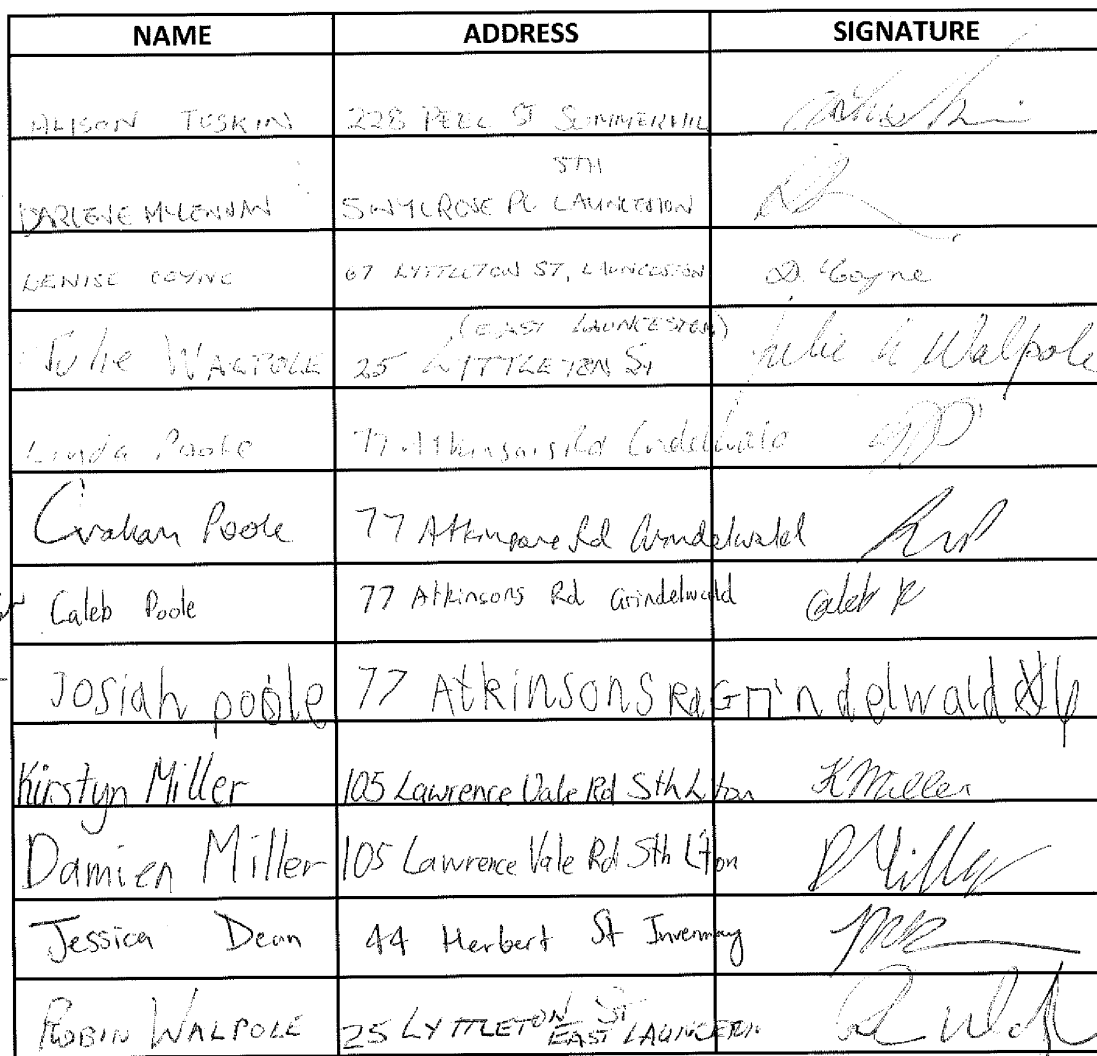 NAME ADDRESS SIGNATURE
ALISON TUSKIN 22B PEEL ST SUMMERHILL
STH
DARLENE McLENNAN 5 WYLROSE PL LAUNCESTON
DENISE COYNE 67 LYTTLETON ST, LAUNCESTON D. Coyne
(EAST LAUNCESTON)
Julie WALPOLE 25 LYTTLETON St Julie A Walpole
Linda Poole 77 Atkinsons Rd Grindelwald
Graham Poole 77 Atkinsons Rd Grindelwald
Caleb Poole 77 Atkinsons Rd Grindelwald Caleb P
Josiah poole 77 Atkinsons Rd Grindelwald
Kirstyn Miller 105 Lawrence Vale Rd Sth L'ton K Miller
Damien Miller 105 Lawrence Vale Rd Sth L'ton D Miller
Jessica Dean 44 Herbert St Invermay
ROBIN WALPOLE 25 LYTTLETON ST
EAST LAUNCESTON